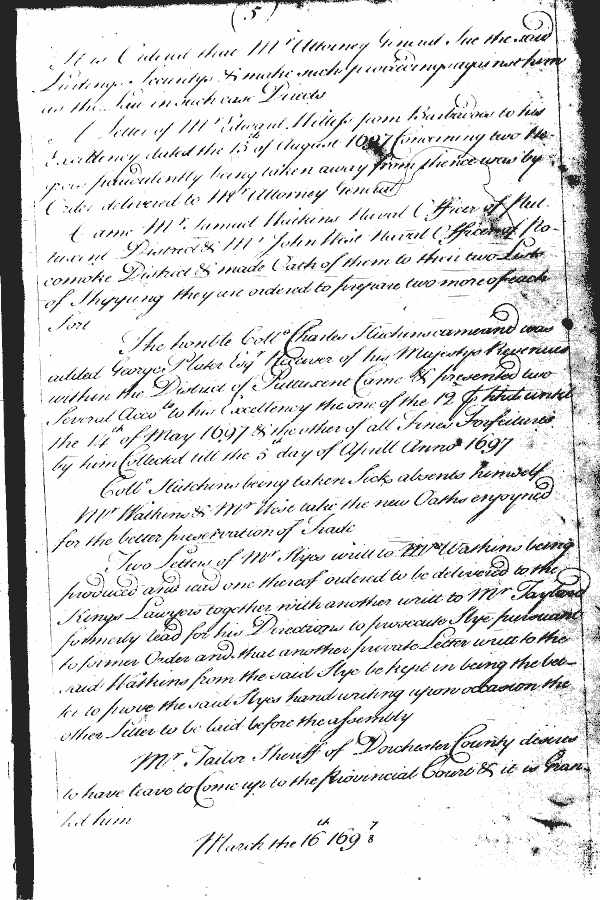 (5)
It is Ordered that Mr Attorney General Sue the said
Securitys & make such proceedings against him
as the Law in such case Directs
A Letter of Mr Edward from Barbadoes to his
Excellency dated the 15th of August 1697 Concerning two Ne-
groes fraudulently being taken away from thence was by
Order delivered to Mr Attorney General
Came Mr Samuel Watkins Naval Officer of Pat-
tuxent District & Mr John West Naval Officer of Po-
comoke District & made Oath of them to their two Lists
of Shipping they are ordered to prepare two more of each
Sort
The honble Collo Charles Hutchins came and was
added George Plater Esqr Receiver of his Majestys Revenues
within the District of Puttuxent Came & presented two
Several Accots to his Excellency the one of the 12 d p hhd until
the 14th of May 1697 & the other of all Fines Forfeitures
by him Collected till the 5th day of Aprill Anno 1697
Collo Hutchins being taken Sick absents himself
Mr Watkins & Mr West take the new Oaths enjoyned
for the better preservation of Trade
Two Letters of Mr Slyes writt to Mr Watkins being
produced and read one thereof ordered to be delivered to the
Kings Lawyers together with another writt to Mr Taylard
formerly read for his Directions to prosecute Slye pursuant
to former Order and that another private Letter writt to the
said Watkins from the said Slye be kept in being the bet-
ter to prove the said Slyes hand writing upon occasion the
other Letter to be laid before the assembly
Mr Tailor Sheriff of Dorchester County desires
to have leave to Come up to the Provincial Court & it is gran-
ted him
March the 16th 1697/8